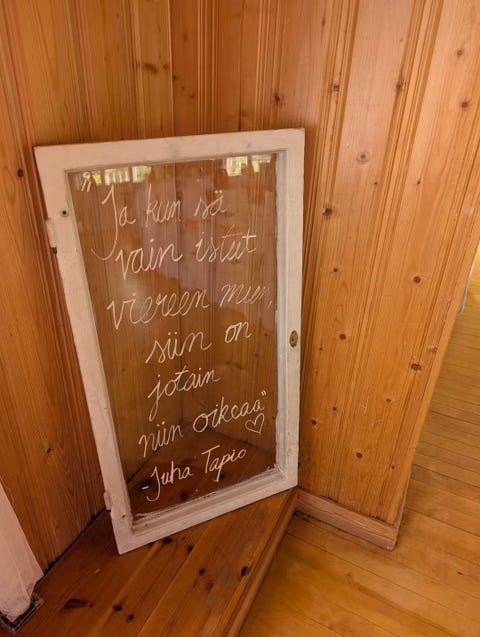 "Ja kun sä
vain istut
viereen mun,
siin on
jotain
niin oikeaa"
- Juha Tapio